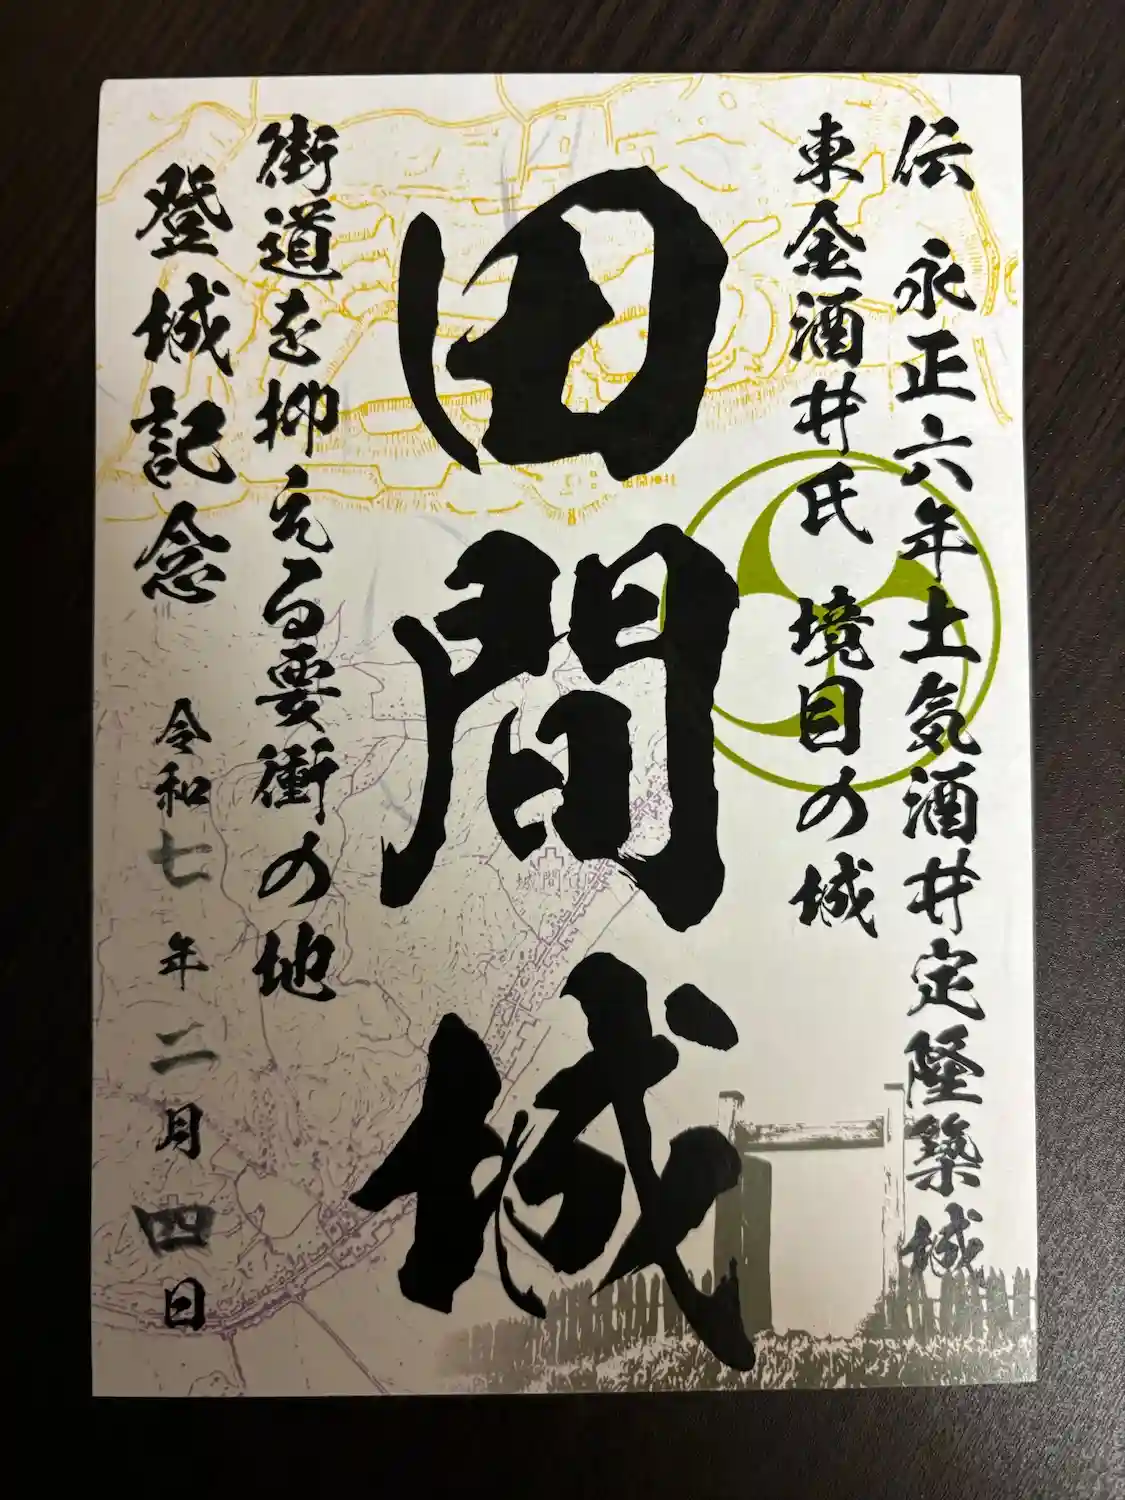 伝 永正六年土気酒井定隆築城
東金酒井氏 境目の城
田間城
街道を抑える要衝の地
登城記念 令和七年二月四日
田間神社
城間田